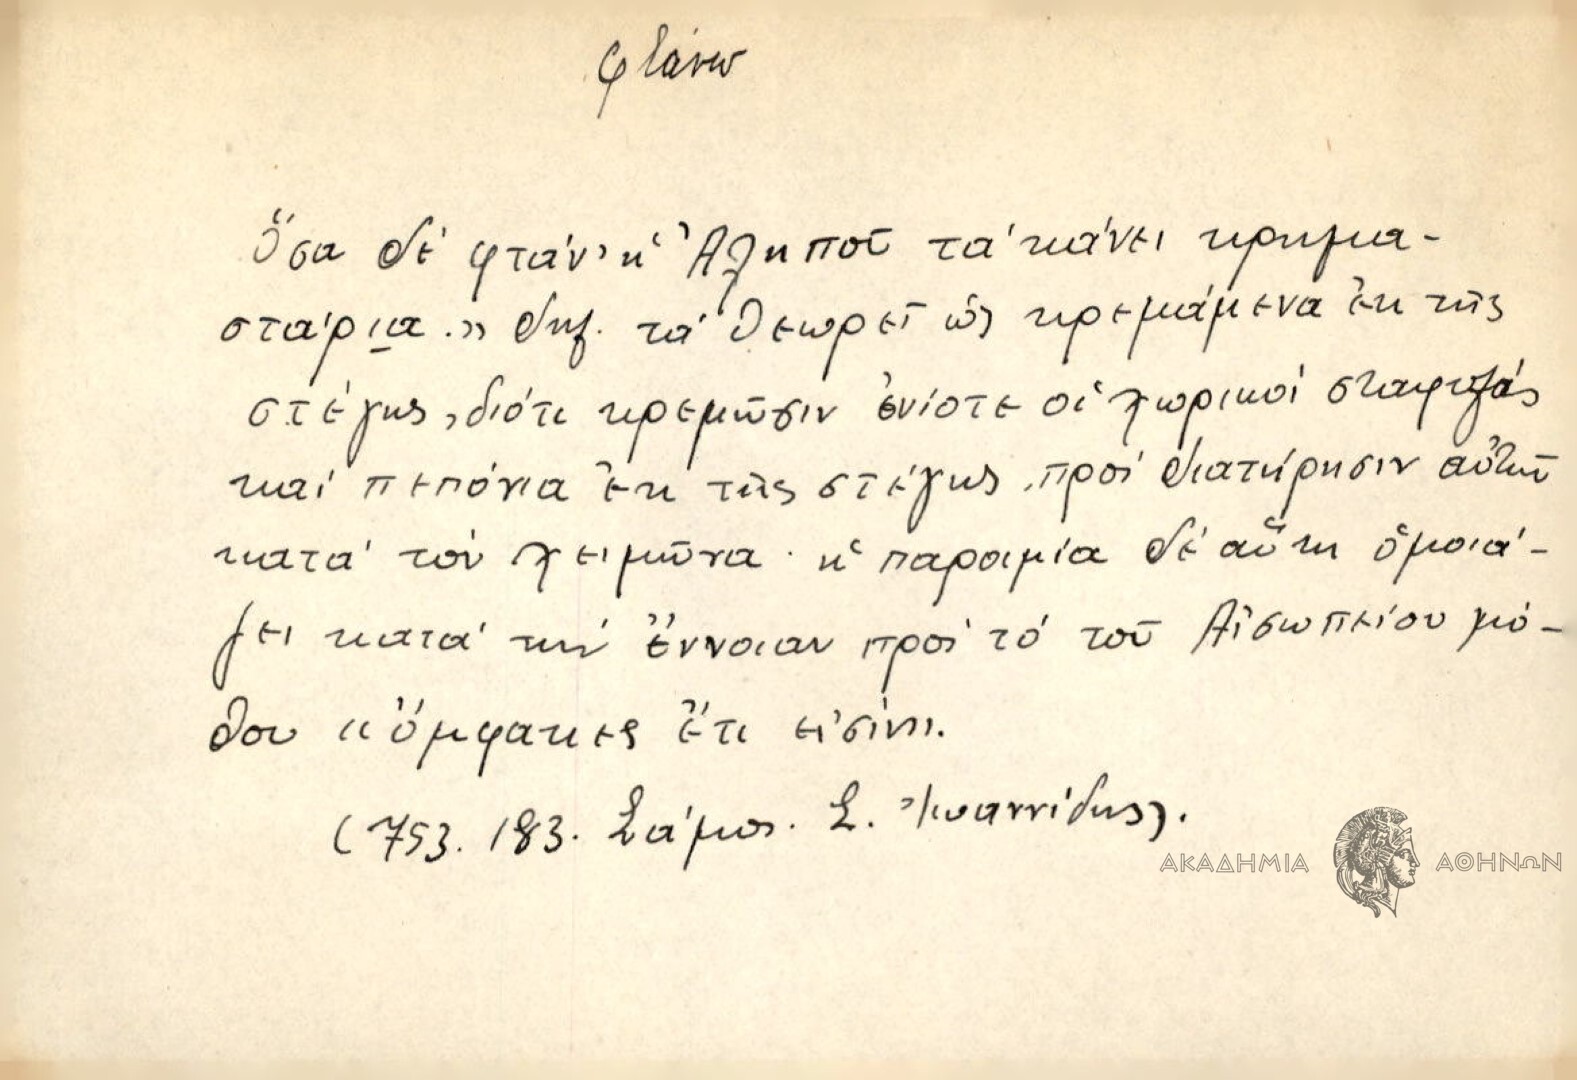 φτάνω
Ὅσα δέ φτάν' ἡ Ἀληποῦ τά κάνει κρημα-
στάρια.» δηλ. τά θεωρεῖ ὡς κρεμάμενα ἐκ τῆς
στέγης, διότι κρεμῶσιν ἐνίοτε οἱ χωρικοί σταφυλάς
καί πεπόνια ἐκ τῆς στέγης, πρός διατήρησιν αὐτῶν
κατά τόν χειμῶνα· ἡ παροιμία δέ αὕτη ὁμοιά-
ζει κατά τήν ἔννοιαν πρός τό τοῦ Αἰσωπείου μύ-
θου «ὄμφακες ἔτι εἰσίν».
(753. 183. Σάμος. Σ. Ἰωαννίδης).
ΑΚΑΔΗΜΙΑ ΑΘΗΝΩΝ